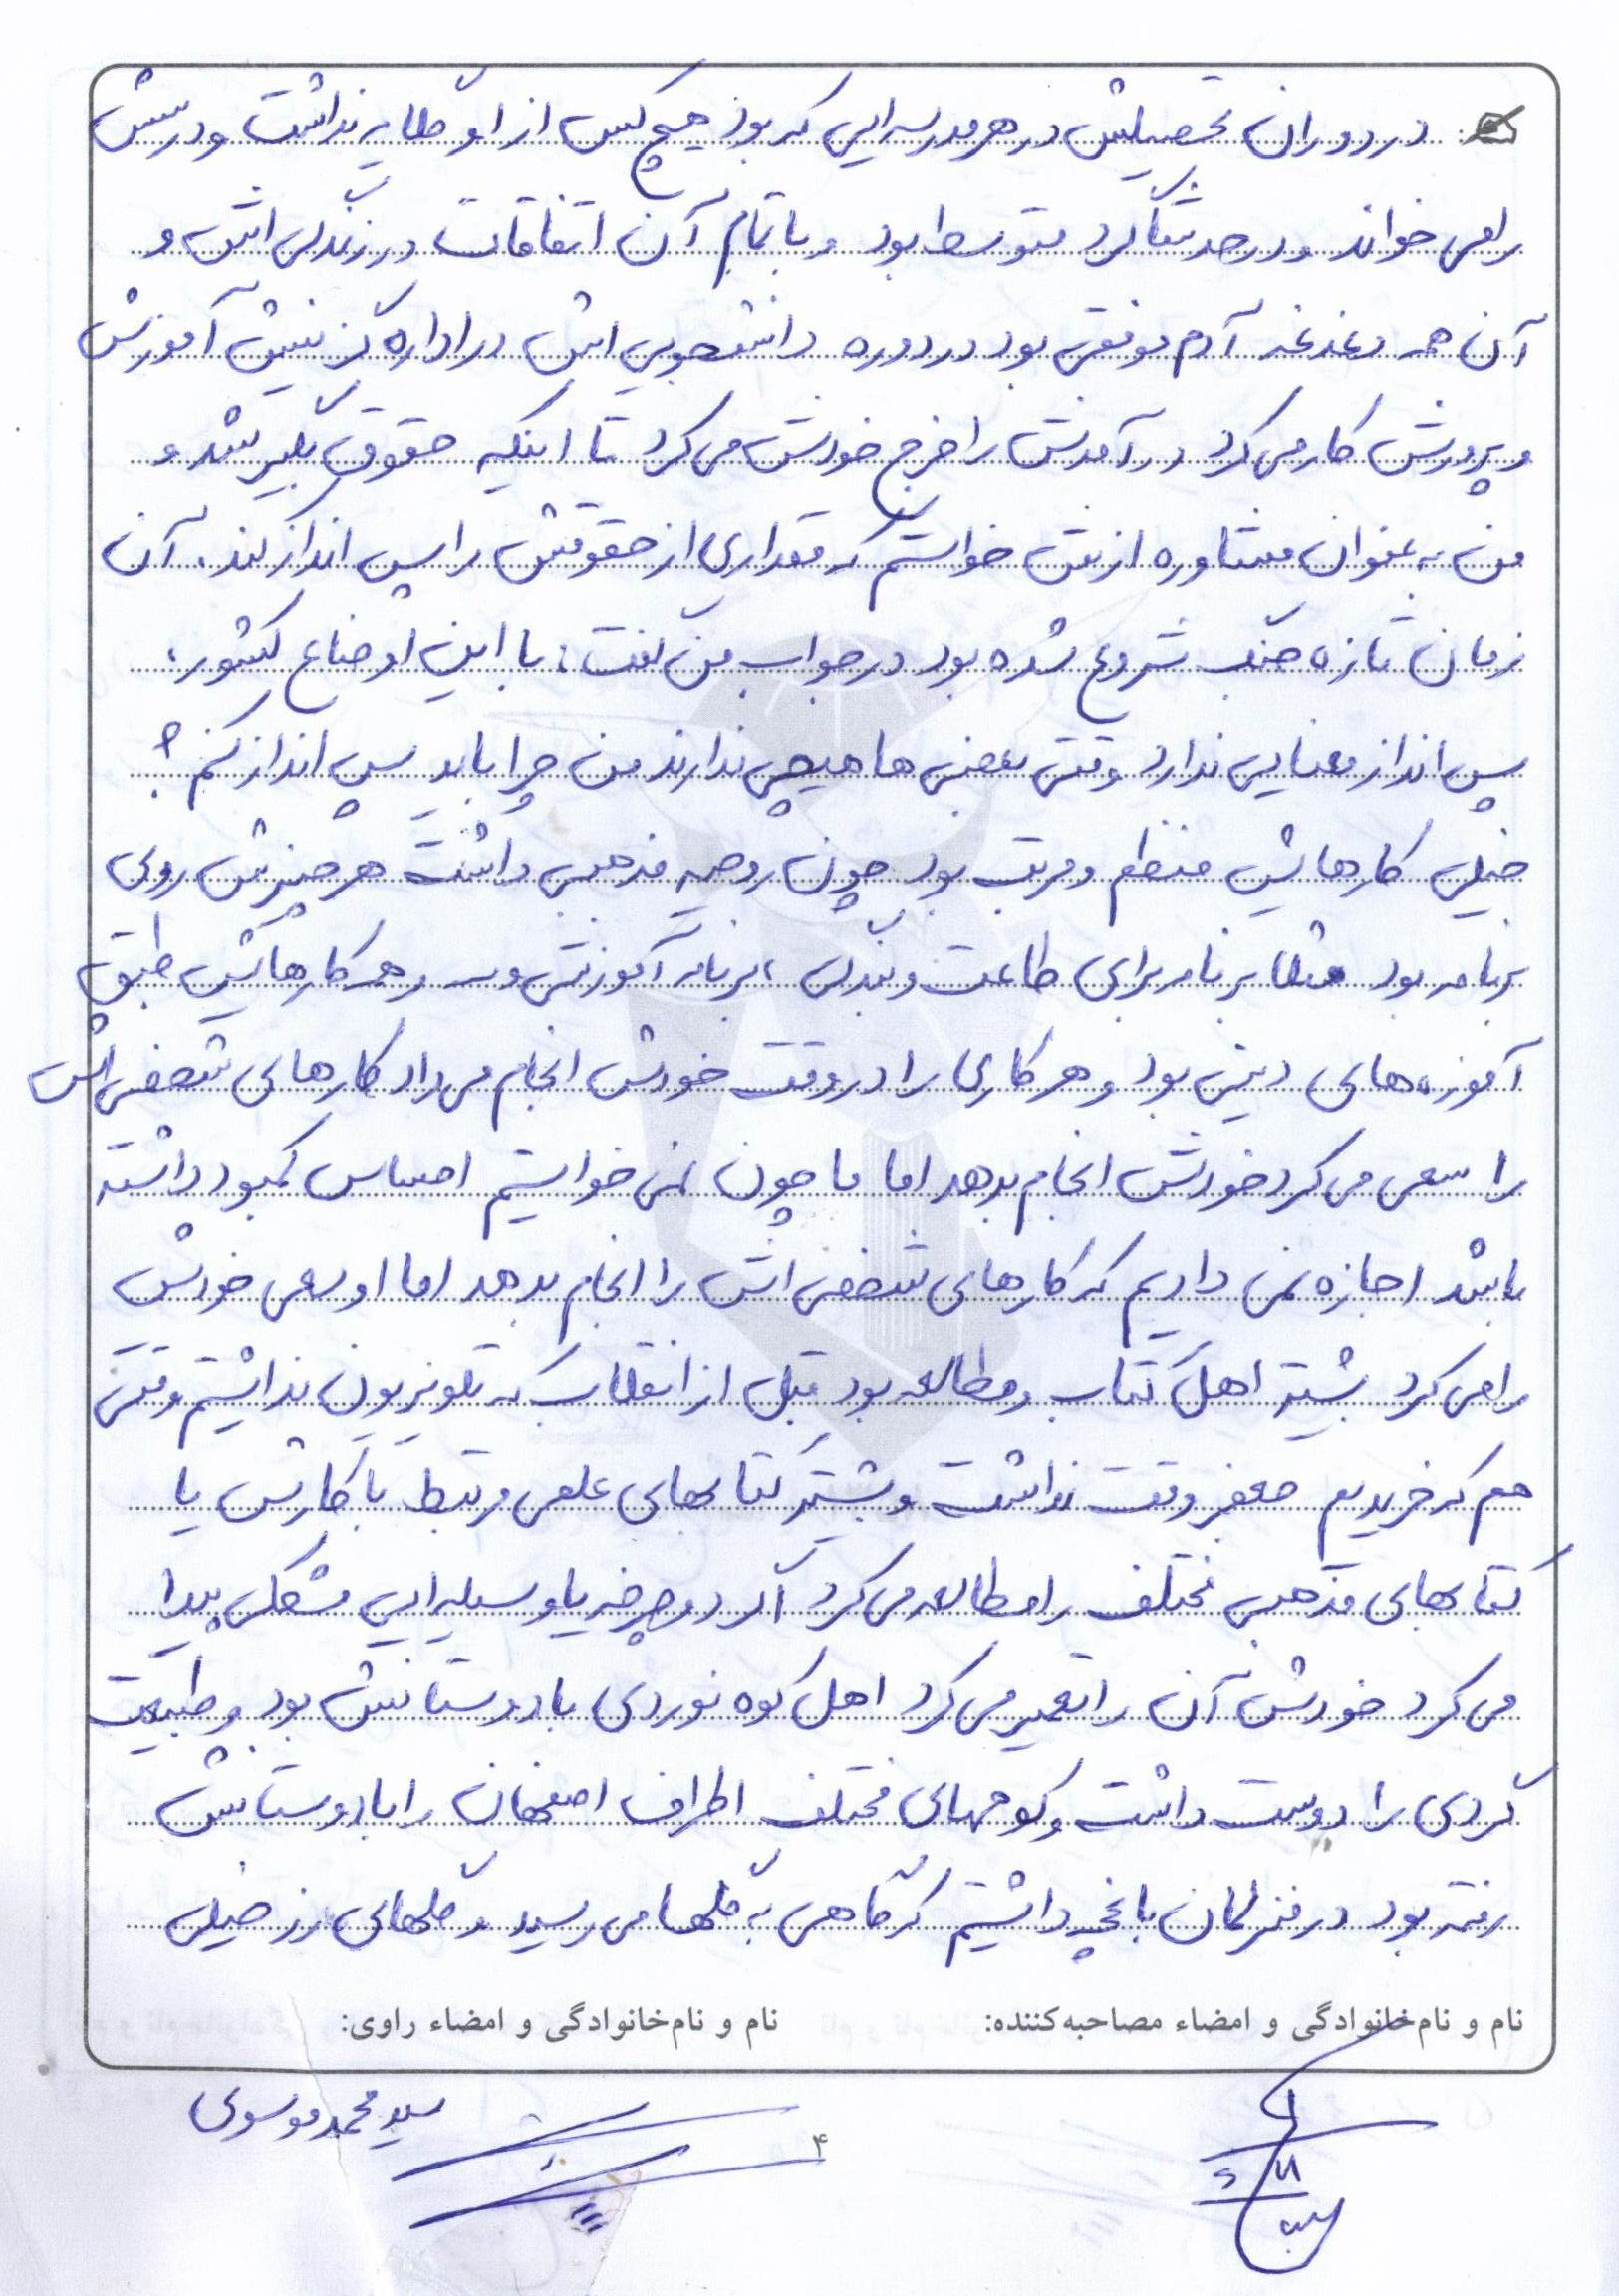 در دوران تحصیلش در هر مدرسه ایی که بود هیچ کس از او شکایت نداشت و درسش
را می خواند و در حد شاگرد متوسط بود و با تمام آن اتفاقات در زندگی اش و
آن همه دغدغه آدم موفقی بود در دوره دانشجویی اش در اداره گزینش آموزش
و پرورش کار می کرد درآمدش را خرج خودش می کرد تا اینکه حقوق بگیر شد و
من به عنوان مشاوره ازش خواستم که مقداری از حقوقش را پس انداز کند. آن
زمان تازه جنگ شروع شده بود در جواب من گفت: با این اوضاع کشور،
پس انداز معنایی ندارد وقتی بعضی ها هیچی ندارند من چرا باید پس انداز کنم؟
خیلی کارهایش منظم و مرتب بود چون روحیه مذهبی داشت هر چیزش روی
برنامه بود مثلا برنامه برای طاعت و بندگی، برنامه آموزشی و ... و همه کارهایش طبق
آموزه های دینی بود و هر کاری را در وقت خودش انجام می داد کارهای شخصی اش
را سعی می کرد خودش انجام بدهد اما ما چون نمی خواستیم احساس کمبود داشته
باشد اجازه نمی دادیم که کارهای شخصی اش را انجام بدهد اما او سعی خودش
را می کرد بیشتر اهل کتاب و مطالعه بود قبل از انقلاب که تلویزیون نداشتیم وقتی
هم که خریدیم جعفر وقت نداشت و بیشتر کتابهای علمی مرتبط با کارش یا
کتابهای مذهبی مختلف را مطالعه می کرد اگر دوچرخه یا وسیله ایی مشکل پیدا
می کرد خودش آن را تعمیر می کرد اهل کوه نوردی با دوستانش بود و طبیعت
گردی را دوست داشت و کوههای مختلف اطراف اصفهان را با دوستانش
رفته بود در منزلمان باغچه داشتیم که گاهی به گلها می رسید و گلهای رز خیلی
نام و نام‌خانوادگی و امضاء مصاحبه‌کننده: نام و نام‌خانوادگی و امضاء راوی:
سید محمد موسوی
۴